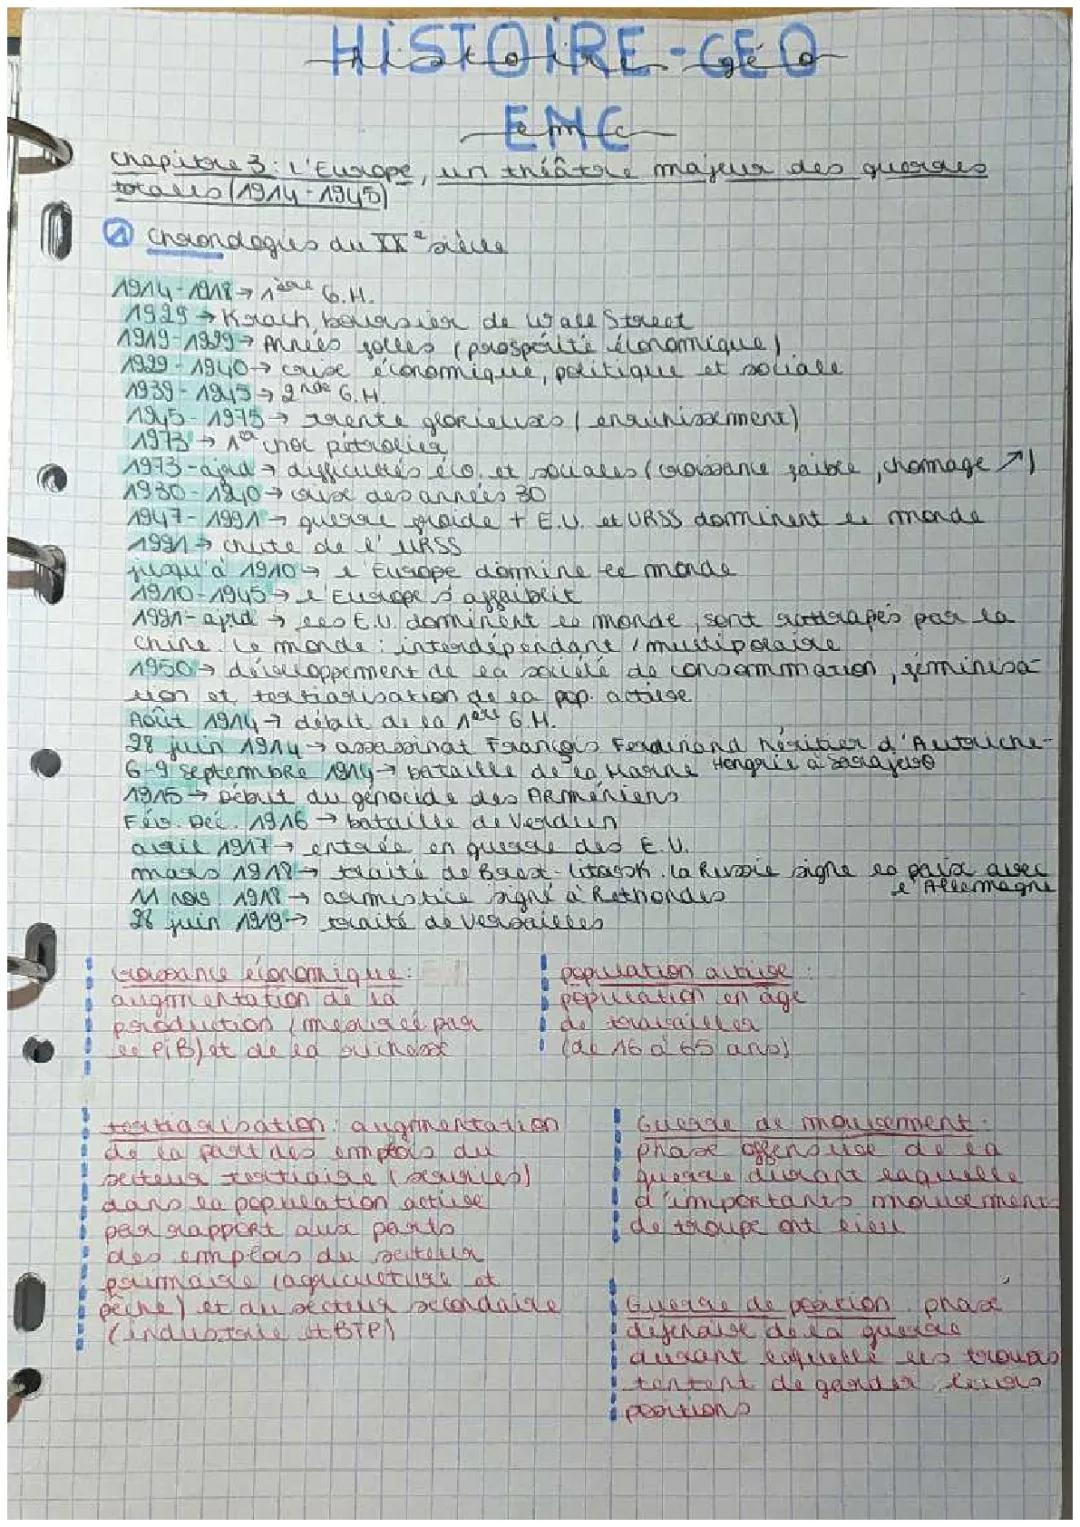 HiSTOiRE-GEO
Histoire-géo
EMC
emc
Chapitre 3: L'Europe, un théâtre majeur des guerres
totales (1914-1945)
1 Chronologies du XXe siècle
1914-1918 → 1ère G.H.
1929 → Krach boursier de Wall Street
1919-1929 → Années folles (prospérité économique)
1929-1940 → crise économique, politique et sociale
1939-1945 → 2nde G.H.
1945-1975 → trente glorieuses (enrichissement)
1973 → 1er choc pétrolier
1973-ajrd → difficultés éco. et sociales (croissance faible, chomage ↗)
1930-1940 → crise des années 30
1947-1991 → guerre froide + E.U. et URSS dominent le monde
1991 → chute de l'URSS
jusqu'à 1910 → l'Europe domine le monde
1910-1945 → l'Europe s'affaiblit
1991-ajrd → les E.U. dominent le monde, sont rattrapés par la
Chine. Le monde: interdépendant / multipolaire
1950 → développement de la société de consommation, féminisa-
tion et tertiarisation de la pop. active
Août 1914 → début de la 1ère G.H.
28 juin 1914 → assassinat François Ferdinand héritier d'Autriche-
Hongrie à Sarajevo
6-9 Septembre 1914 → bataille de la Marne
1915 → Début du génocide des ARméniens
Fév. Déc. 1916 → bataille de Verdun
avril 1917 → entrée en guerre des E.U.
mars 1918 → traité de Brest-Litovsk. la Russie signe la paix avec
l'Allemagne
11 nov 1918 → armistice signé à Rethondes
28 juin 1919 → traité de Versailles
croissance économique:
augmentation de la
production (mesurée par
le PiB) et de la richesse
population active:
population en âge
de travailler
(de 16 à 65 ans)
tertiarisation: augmentation
de la part des emplois du
secteur tertiaire (services)
dans la population active
par rapport aux parts
des emplois du secteur
primaire (agriculture et
pêche) et du secteur secondaire
(industrie et BTP)
Guerre de mouvement:
phase offensive de la
guerre durant laquelle
d'importants mouvements
de troupe ont lieu
Guerre de position: phase
défensive de la guerre
durant laquelle les troupes
tentent de garder leurs
positions